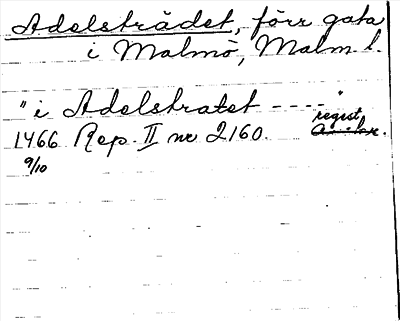 Adelstrådet, förr gata
i Malmö, Malm l.
"i Adelstratet ----"
regist.
1466 Rep. II nr 2160.
9/10